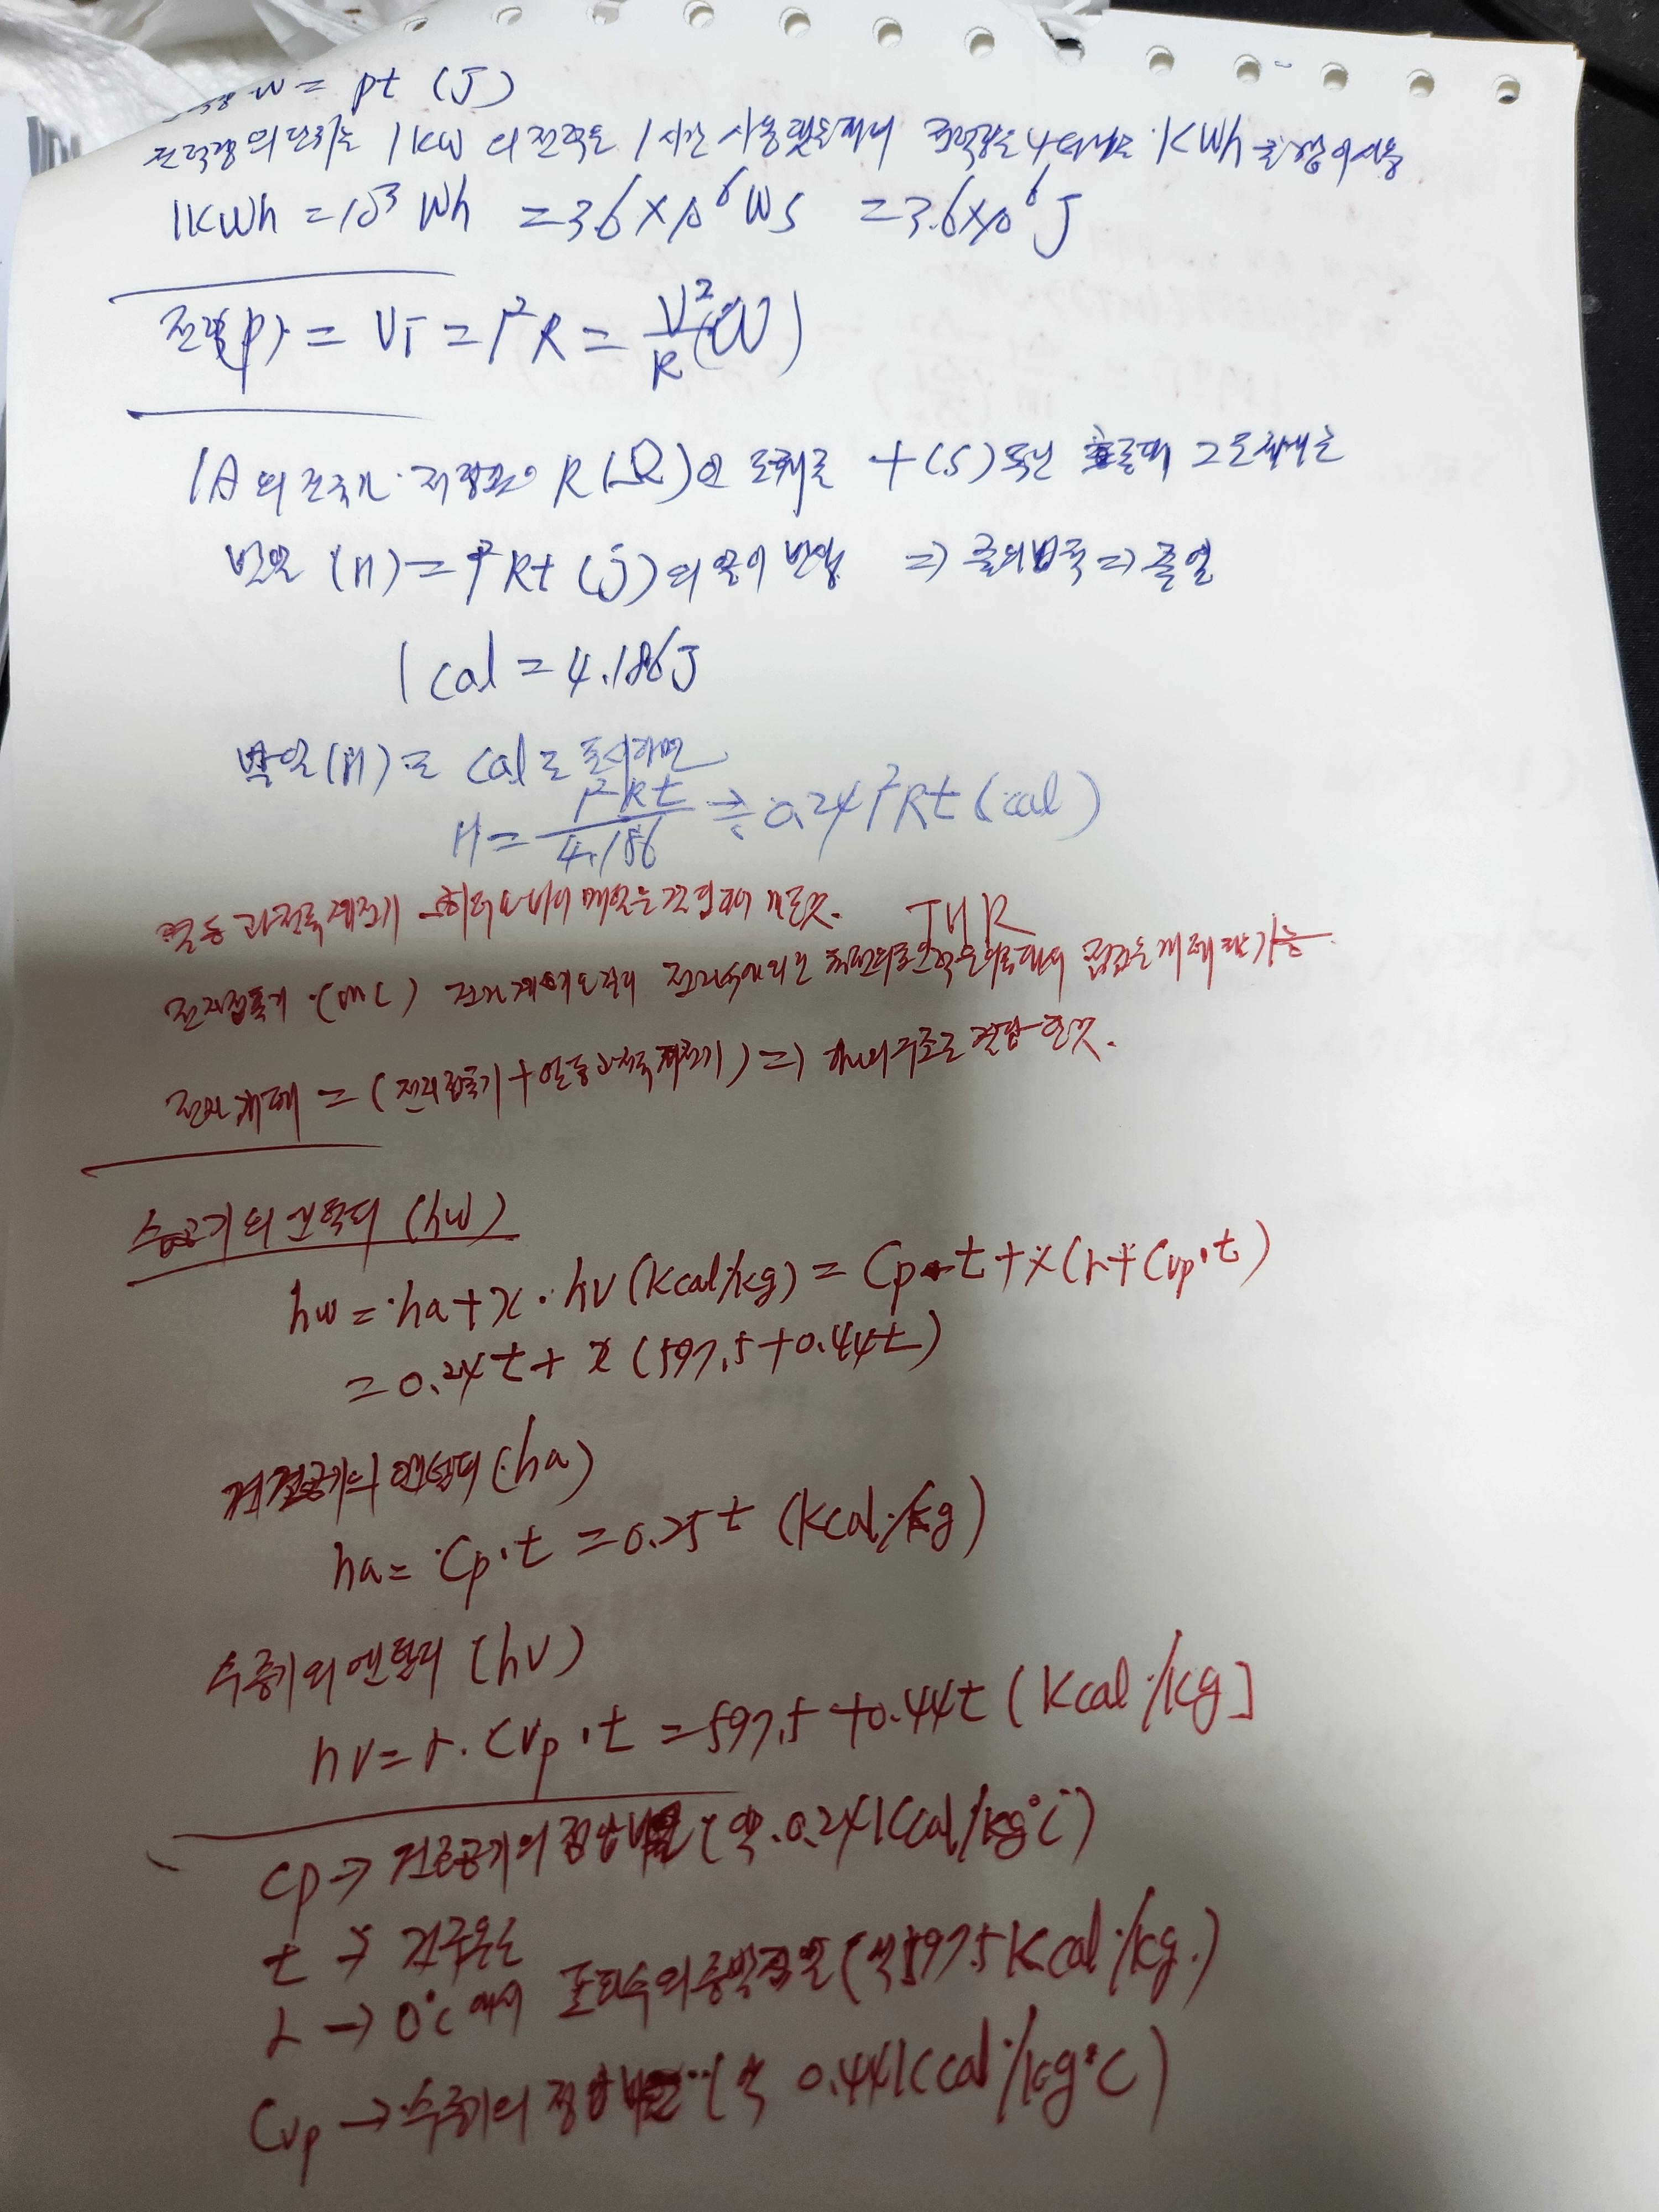 W = pt (J)
전력량의 단위는 1KW의 전력을 1시간 사용했을때의 전력량을 나타내는 KWh를 많이 사용
1KWh = 10³ Wh = 36 × 10⁶ WS = 3.6×10⁶ J
전력(P) = VI = I²R = V²/R (W)
1A의 전류가 저항값이 R(Ω)인 도체를 t(S) 동안 흐를때 그 도체에는
발열 (H) = I²Rt (j)의 열이 발생 ⇒ 줄의 법칙 ⇒ 줄열
1 cal = 4.186J
발열(H)를 cal로 표시하면
H = I²Rt/4.186 ≒ 0.24 I²Rt (cal)
열동 과전류계전기 THR
전자접촉기 (MC) 접점을 개폐 가능
전자개폐 = (전자접촉기 + 열동과전류계전기) ⇒ 하나의 구조로 결합한것.
습공기의 엔탈피 (hw)
hw = ha + x · hv (Kcal/kg) = Cp · t + x (r + Cvp · t)
= 0.24 t + x (597.5 + 0.44t)
건공기의 엔탈피 (ha)
ha = Cp · t = 0.25 t (Kcal/kg)
수증기의 엔탈피 (hv)
hv = r · Cvp · t = 597.5 + 0.44t (Kcal/kg]
Cp → 건공기의 정압비열 (약 0.24 Kcal/kg°C)
t → 건구온도
r → 0°C에서 포화수의 증발잠열 (약 597.5 Kcal/kg.)
Cvp → 수증기의 정압비열 (약 0.44 Kcal/kg°C)